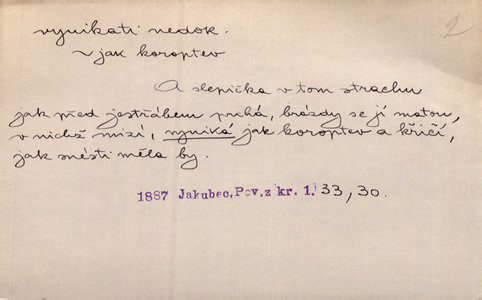 vynikati nedok. 2
~ jak koroptev
A slepička v tom strachu
jak před jestřábem prhá, brázdy se jí matou,
v nichž mizí, vyniká jak koroptev a křičí,
jak snésti měla by.
1887 Jakubec, Pov. z kr. 1. 33, 30.